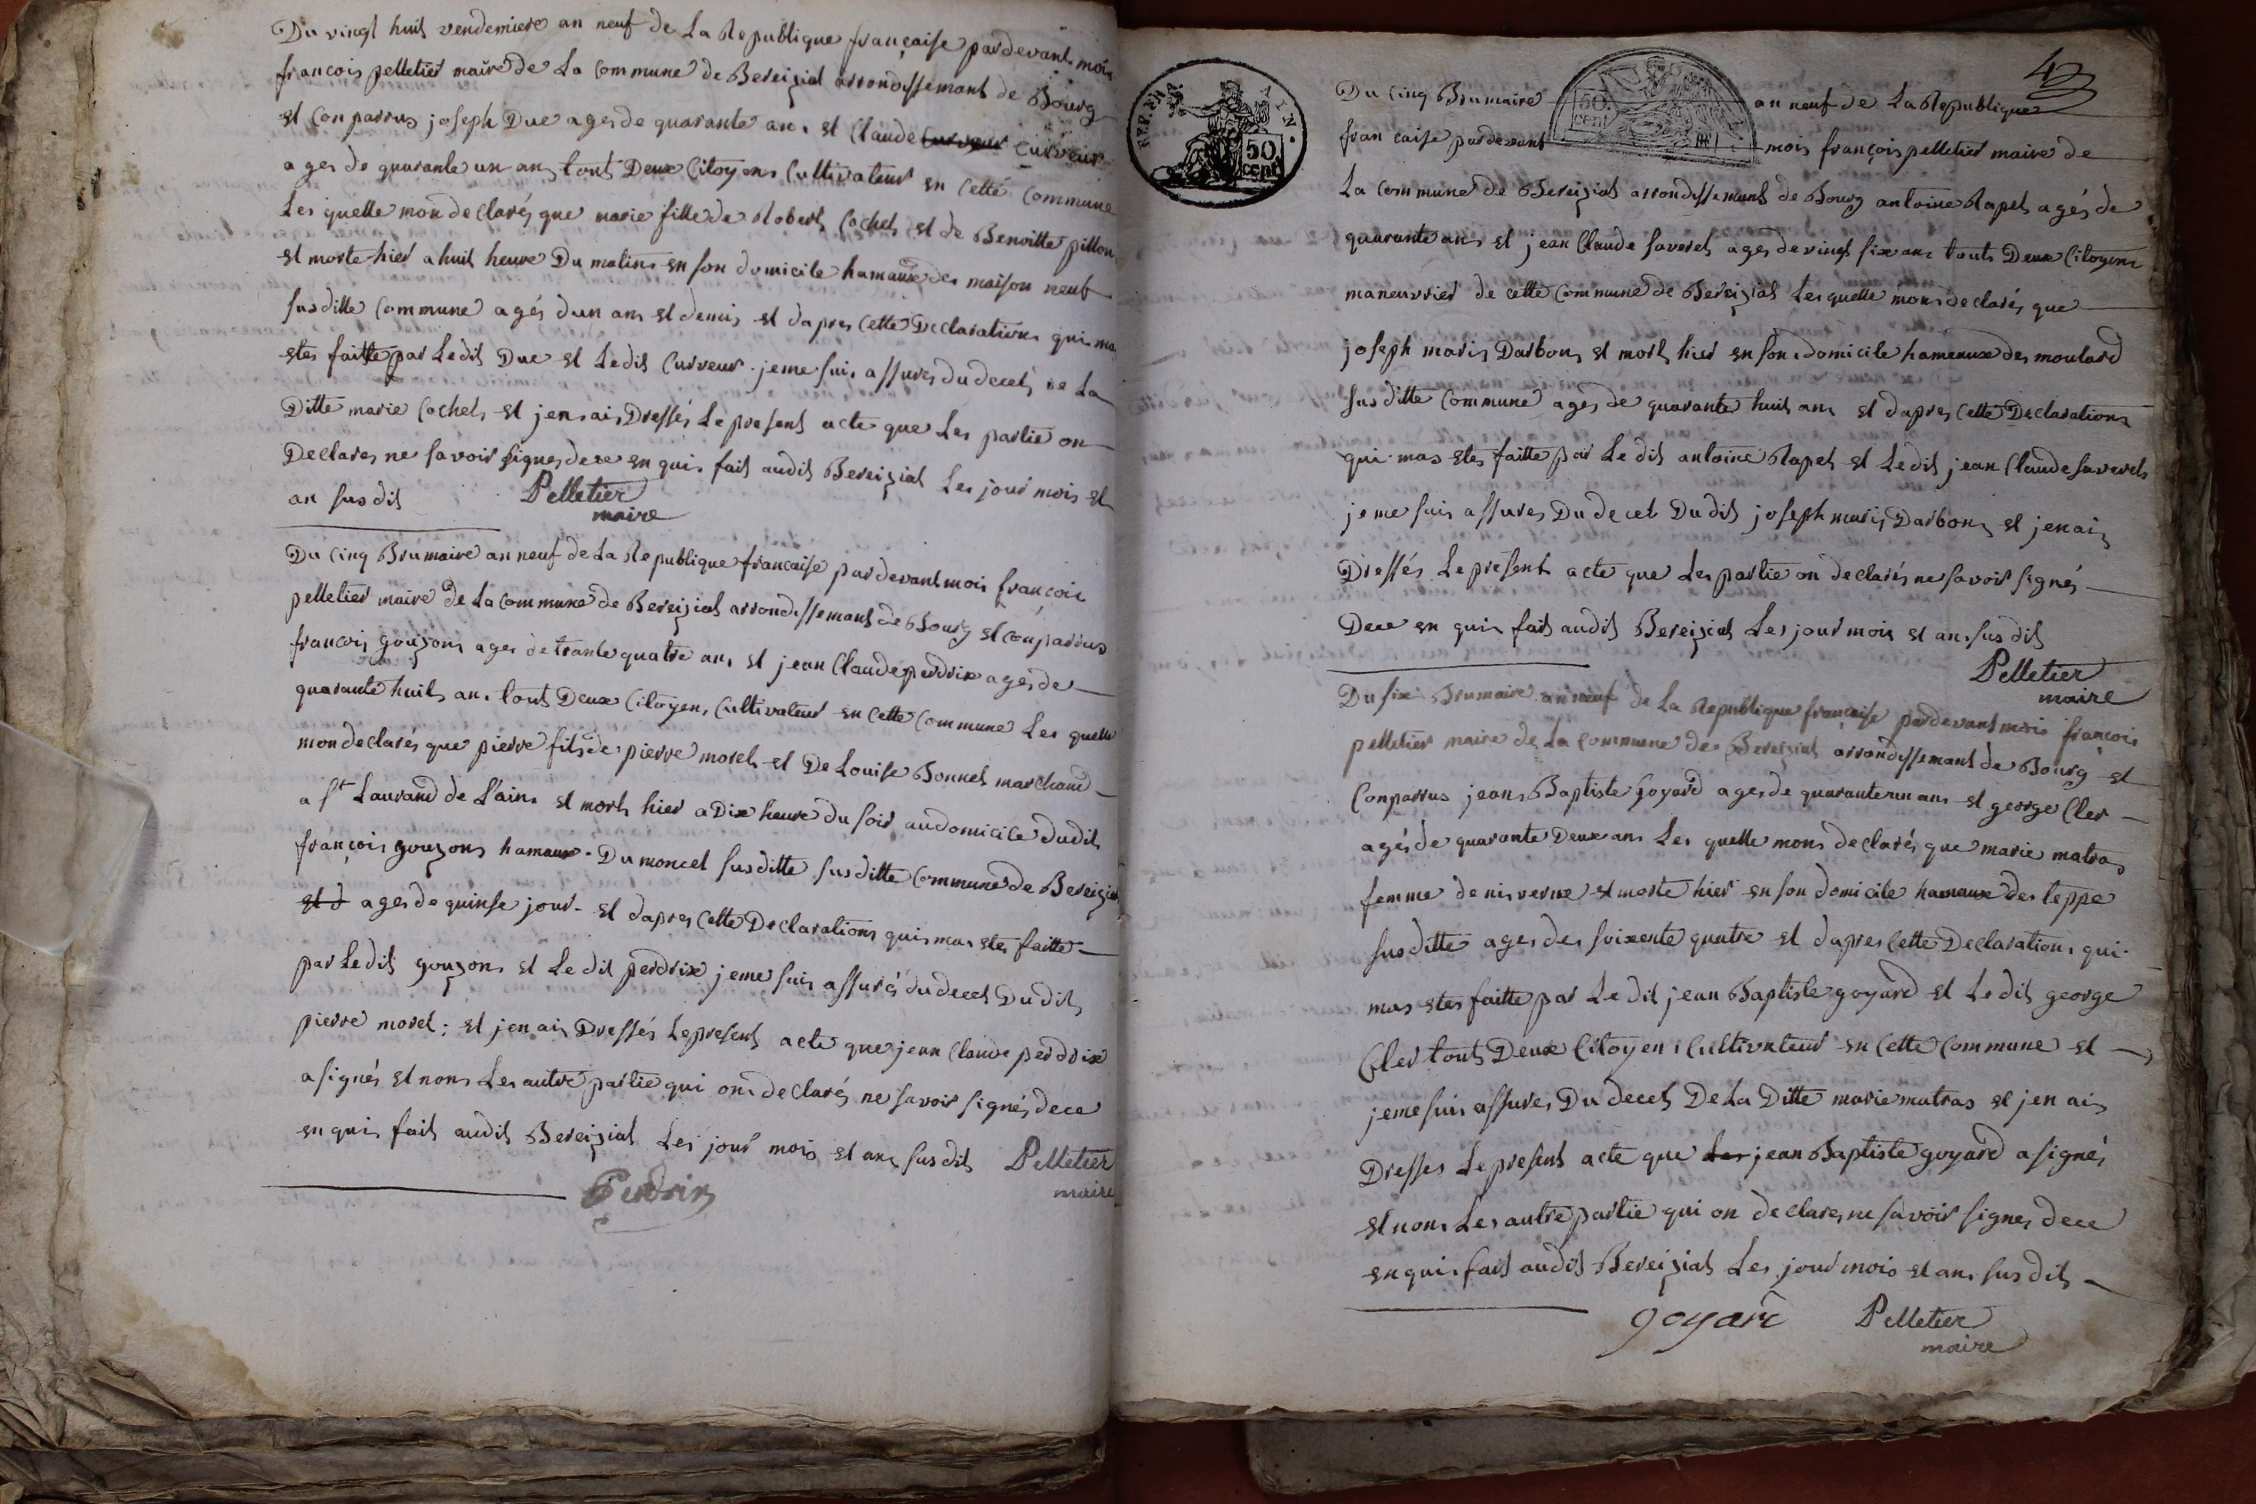 Du vingt huit vendemiere an neuf de La Republique françaisse pardevant moi
francois pelletier maire de La Commune de Bereiziat arrondissemant de Bourg
et Conparrus joseph Duc ages de quarante an. et Claude Curveur Curveur
ages de quarante un an tout Deux Citoyens Cultivateur en Cette Commune
Les quelle mon declarés que marie fille de Robert Cochet et de Benoitte pillon
et morte hier a huit heure Du matins en son domicile hamaux des maison neuf
susditte Commune agés dun ans et demis et dapres Cette Declarations qui ma
etes faitte par Ledit Duc et Ledit Curveur jeme suis assures du decet de La
Ditte marie Cochet et jen ais Dressés Le present acte que Les partie on
Declares ne savoir signes dece en quis fait audit Bereiziat Les jour mois et
an susdit
Pelletier
maire
Du Cinq Brumaire an neuf de La Republique francaise pardevant mois françois
pelletier maire de La Commune de Bereiziat arrondissemant de Bourg et Conparrus
francois gouzons ages de trante quatre ans et jean Claude perdrix ages de
quarante huit an. tout Deux Citoyens Cultivateur en Cette Commune Les quelle
mon declarés que pierre fils de pierre morel et De Louise Bonnet marchand
a St Laurand de L'ains et mort hier a Dix heure du soir audomicile dudit
françois gouzons hamaux Du moncel susditte susditte Commune de Bereiziat
et d ages de quinse jour. et dapres Cette Declarations quis mas etes faitte
par Ledit gouzons et Le dit perdrix jeme suis assurés du decet Du dit
pierre morel ; et jen ais Dressés Lepresent acte que jean Claude perdrix
a signés et nons Les autre partie qui ons declarés ne savoir signés dece
en quis fait audit Bereiziat Les jour mois et ans susdit
Pelletier
maire
Perdrix
43
REP. FRA.
AIN.
50
cent
50
cent
Du Cinq Brumaire an neuf de La Republique
francaise pardevant mois françois pelletier maire de
La Commune de Bereiziat arrondissemant de Bourg antoine Rapet agés de
quarante ans et jean Claude saveret ages de vingt six ans touts Deux Citoyens
maneuvrier de cette Commune de Bereiziat Les quelle mons declarés que
joseph maris Darbons et mort hier en sons domicile hameaux des moulard
susditte Commune ages de quarante huit ans et dapres Cette Declarations
qui mas etes faitte par Le dit antoine Rapet et Ledit jean Claude saveret
jeme suis assures Du decet Dudit joseph maris Darbons et jenais
Dressés Lepresent acte que Les partie on declarés ne savoir signés
Dece en quis fait audit Bereiziat Les jour mois et ans susdit
Pelletier
maire
Du six Brumaire an neuf de La Republique françaisse pardevant mois françois
pelletier maire de La Commune de Bereiziat arrondissemant de Bourg et
Conparrus jeans Baptiste goyard ages de quaranteun ans et george Cler
agés de quarante Deux ans Les quelle mons declarés que marie matras
femme denis verne et morte hier en son domicile hamaux des teppe
susditte ages des soixente quatre et dapres Cette Declarations qui
mas etes faitte par Le dit jean Baptiste goyard et Ledit george
Cler tout Deux Citoyens Cultivateur en Cette Commune et
jeme suis assures Du decet De La Ditte marie matras et jen ais
Dresses Lepresent acte que Les jean Baptiste goyard a signés
et nons Les autre partie qui on declares ne savoir signes dece
en quis fait audit Bereiziat Les jour mois et ans susdit
goyard
Pelletier
maire